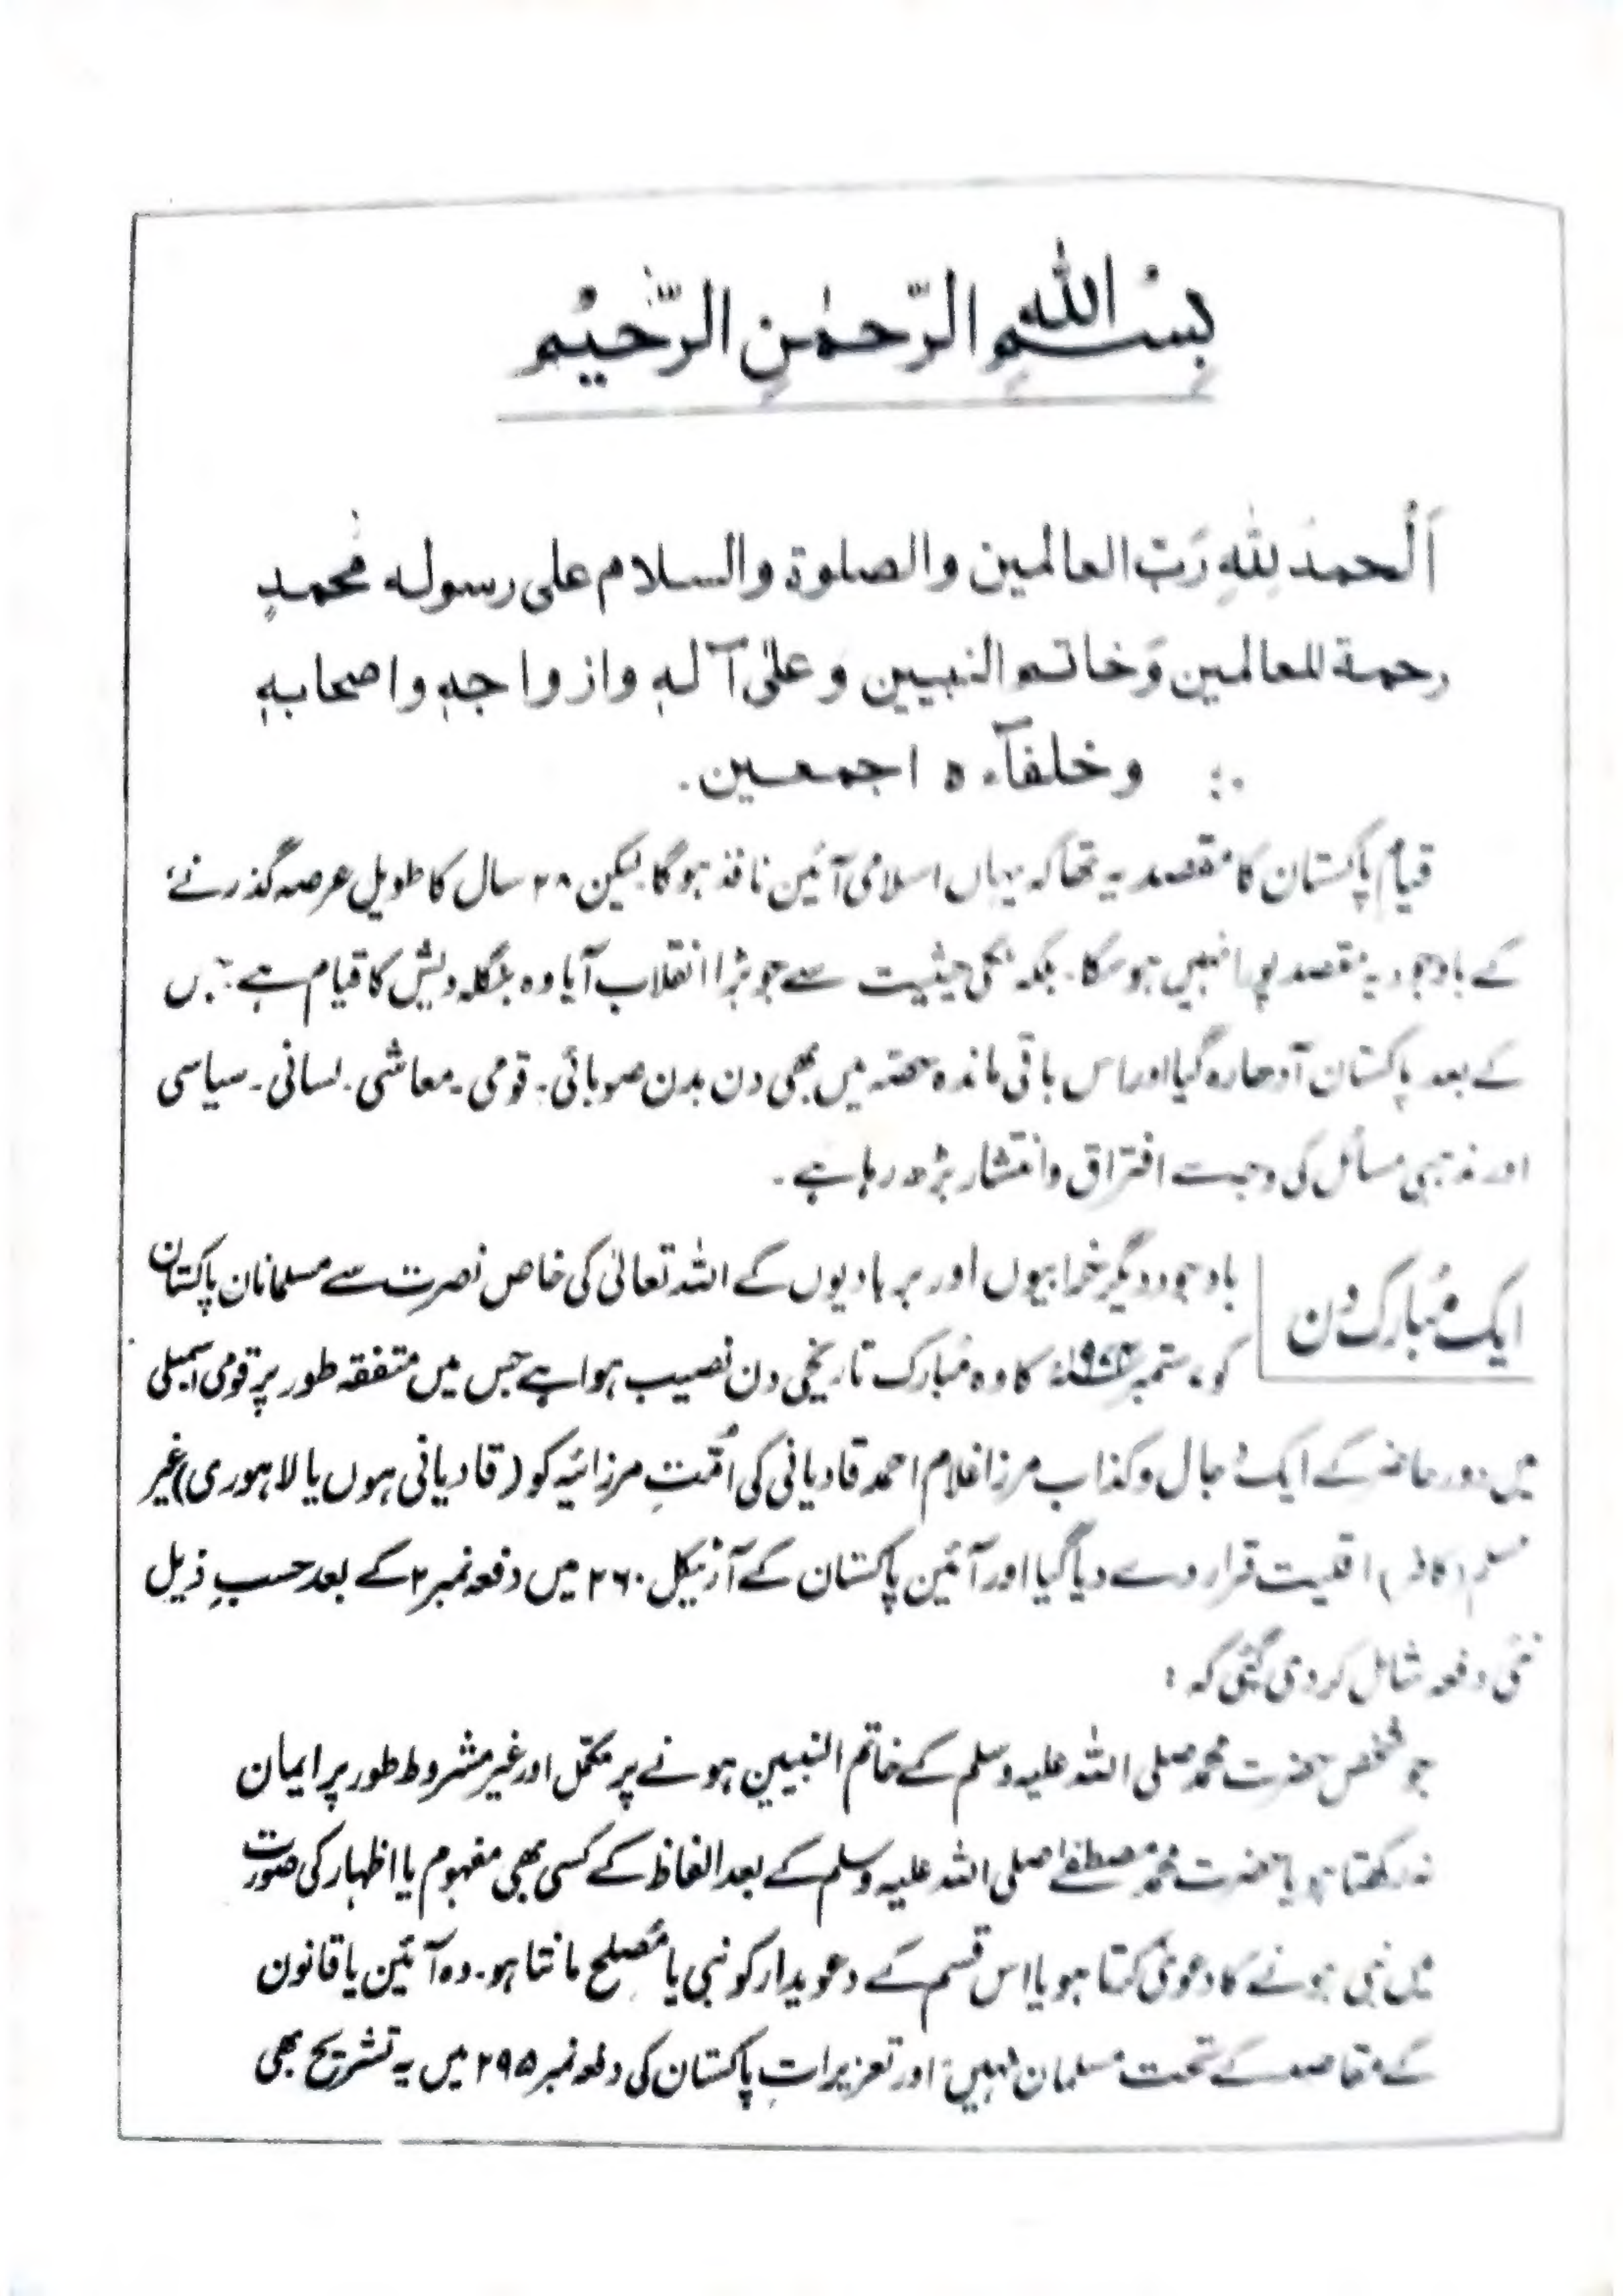 بِسْمِ اللهِ الرَّحمٰنِ الرَّحِيْم
اَلْحمدُ لِلّٰهِ رَبّ العالمین والصلوة والسلام علی رسوله محمدٍ
رحمة للعالمین وَخاتم النبیین وَعلیٰ آلهٖ وازواجهٖ واصحابهٖ
وخلفآءه اجمعین.
قیام پاکستان کا مقصد یہ تھا کہ یہاں اسلامی آئین نافذ ہوگا۔ لیکن ۲۸ سال کا طویل عرصہ گذرنے
کے باوجود یہ مقصد پورا نہیں ہوسکا۔ بلکہ ملکی حیثیت سے جو بڑا انقلاب آیا وہ بنگلہ دیش کا قیام ہے جس
کے بعد پاکستان آدھا رہ گیا اور اس باقی ماندہ حصّہ میں بھی دن بدن صوبائی۔ قومی۔ معاشی۔ لسانی۔ سیاسی
اور مذہبی مسائل کی وجہ سے افتراق و انتشار بڑھ رہا ہے۔
ایک مُبارک دن
باوجود دیگر خرابیوں اور بربادیوں کے اللہ تعالیٰ کی خاص نصرت سے مسلمانان پاکستان
کو ۷ ستمبر ۱۹۷۴ء کا وہ مُبارک تاریخی دن نصیب ہوا ہے جس میں متفقہ طور پر قومی اسمبلی
میں دور حاضر کے ایک دجال و کذاب مرزا غلام احمد قادیانی کی اُمّتِ مرزائیہ کو (قادیانی ہوں یا لاہوری) غیر
مسلم (کافر) اقلیت قرار دے دیا گیا اور آئین پاکستان کے آرٹیکل ۲۶۰ میں دفعہ نمبر ۲ کے بعد حسبِ ذیل
نئی دفعہ شامل کردی گئی کہ :
جو شخص حضرت محمد صلی اللہ علیہ وسلم کے خاتم النبیین ہونے پر مکمّل اور غیر مشروط طور پر ایمان
نہ رکھتا ہو یا حضرت محمد مصطفےٰ صلی اللہ علیہ وسلم کے بعد الفاظ کے کسی بھی مفہوم یا اظہار کی صورت
میں نبی ہونے کا دعویٰ کرتا ہو یا اس قسم کے دعویدار کو نبی یا مُصلح مانتا ہو۔ وہ آئین یا قانون
کے مقاصد کے تحت مسلمان نہیں: اور تعزیراتِ پاکستان کی دفعہ نمبر ۲۹۵ میں یہ تشریح بھی